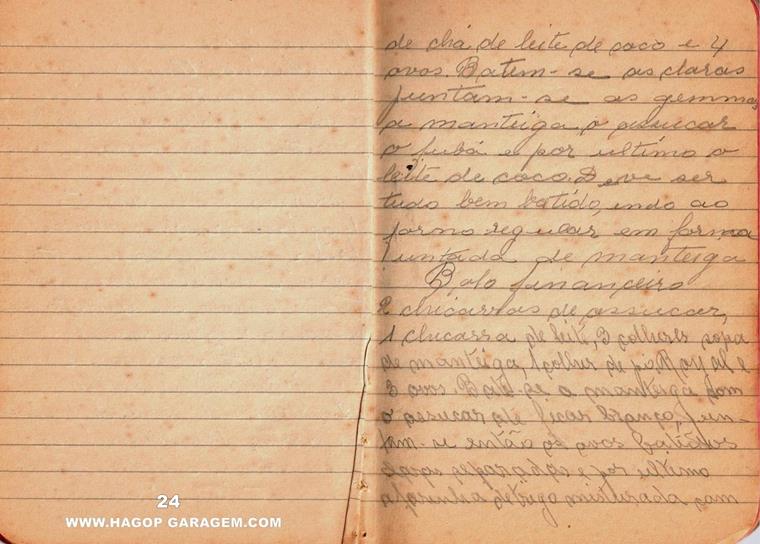 de chá de leite de coco e 4
ovos. Batem-se as claras
juntam-se as gemmas
a manteiga, o assucar
o fubá e por ultimo o
leite de coco. Deve ser
tudo bem batido, indo ao
forno regular em forma
untada de manteiga
Bolo financeiro
2 chicarras de assucar,
1 chicarra de leite, 3 colheres sopa
de manteiga, 1 colher de pó Royal e
3 ovos Bate-se a manteiga com
o assucar até ficar branco, jun-
tam-se então os ovos batidos
claras separadas e por ultimo
a farinha de trigo misturada com
24
WWW.HAGOP GARAGEM.COM